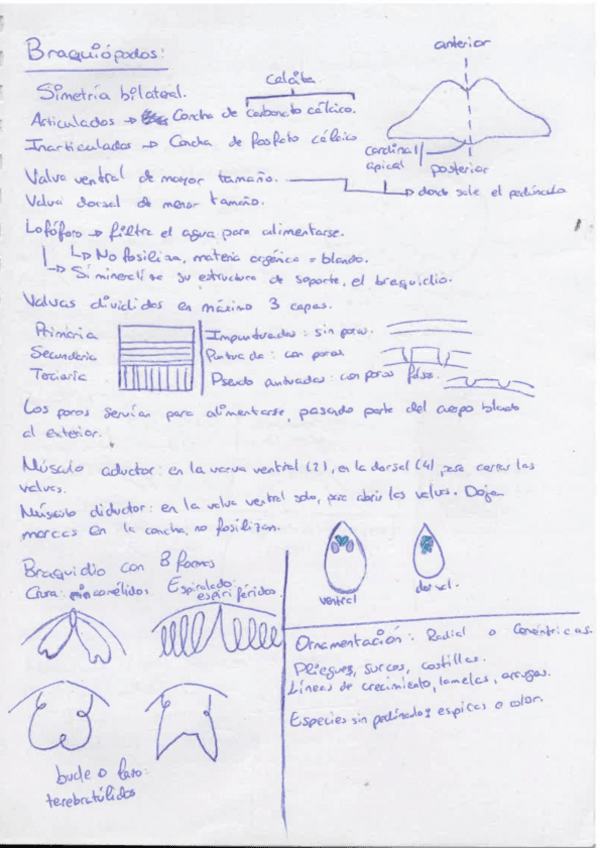 Braquiópodos:
anterior
calcita
Simetría bilateral.
Articulados → Concha de carbonato cálcico.
Inarticulados → Concha de fosfato cálcico
cardinal
apical
posterior
Valva ventral de mayor tamaño.
donde sale el pedúnculo
Valva dorsal de menor tamaño.
Lofóforo → filtra el agua para alimentarse.
→ No fosiliza, materia orgánica = blando.
→ Si mineraliza su estructura de soporte, el braquidio.
Valvas divididas en máximo 3 capas.
Primaria
Secundaria
Terciaria
Impuntuadas: sin poros.
Puntuada: con poros
Pseudo puntuadas: con poros falsos.
Los poros servían para alimentarse, pasando parte del cuerpo blando
al exterior.
Músculo aductor: en la valva ventral (2), en la dorsal (4), para cerrar las
valvas.
Músculo diductor: en la valva ventral solo, para abrir las valvas. Dejan
marcas en la concha, no fosilizan.
ventral
dorsal.
Braquidio con 3 formas
Crura: rinconélidos.
Espiralado:
espiriféridos.
bucle o lazo:
terebratúlidos
Ornamentación: Radial o Concéntricas.
Pliegues, surcos, costillas.
Líneas de crecimiento, lamelas, arrugas.
Especies sin pedúnculo: espinas o color.